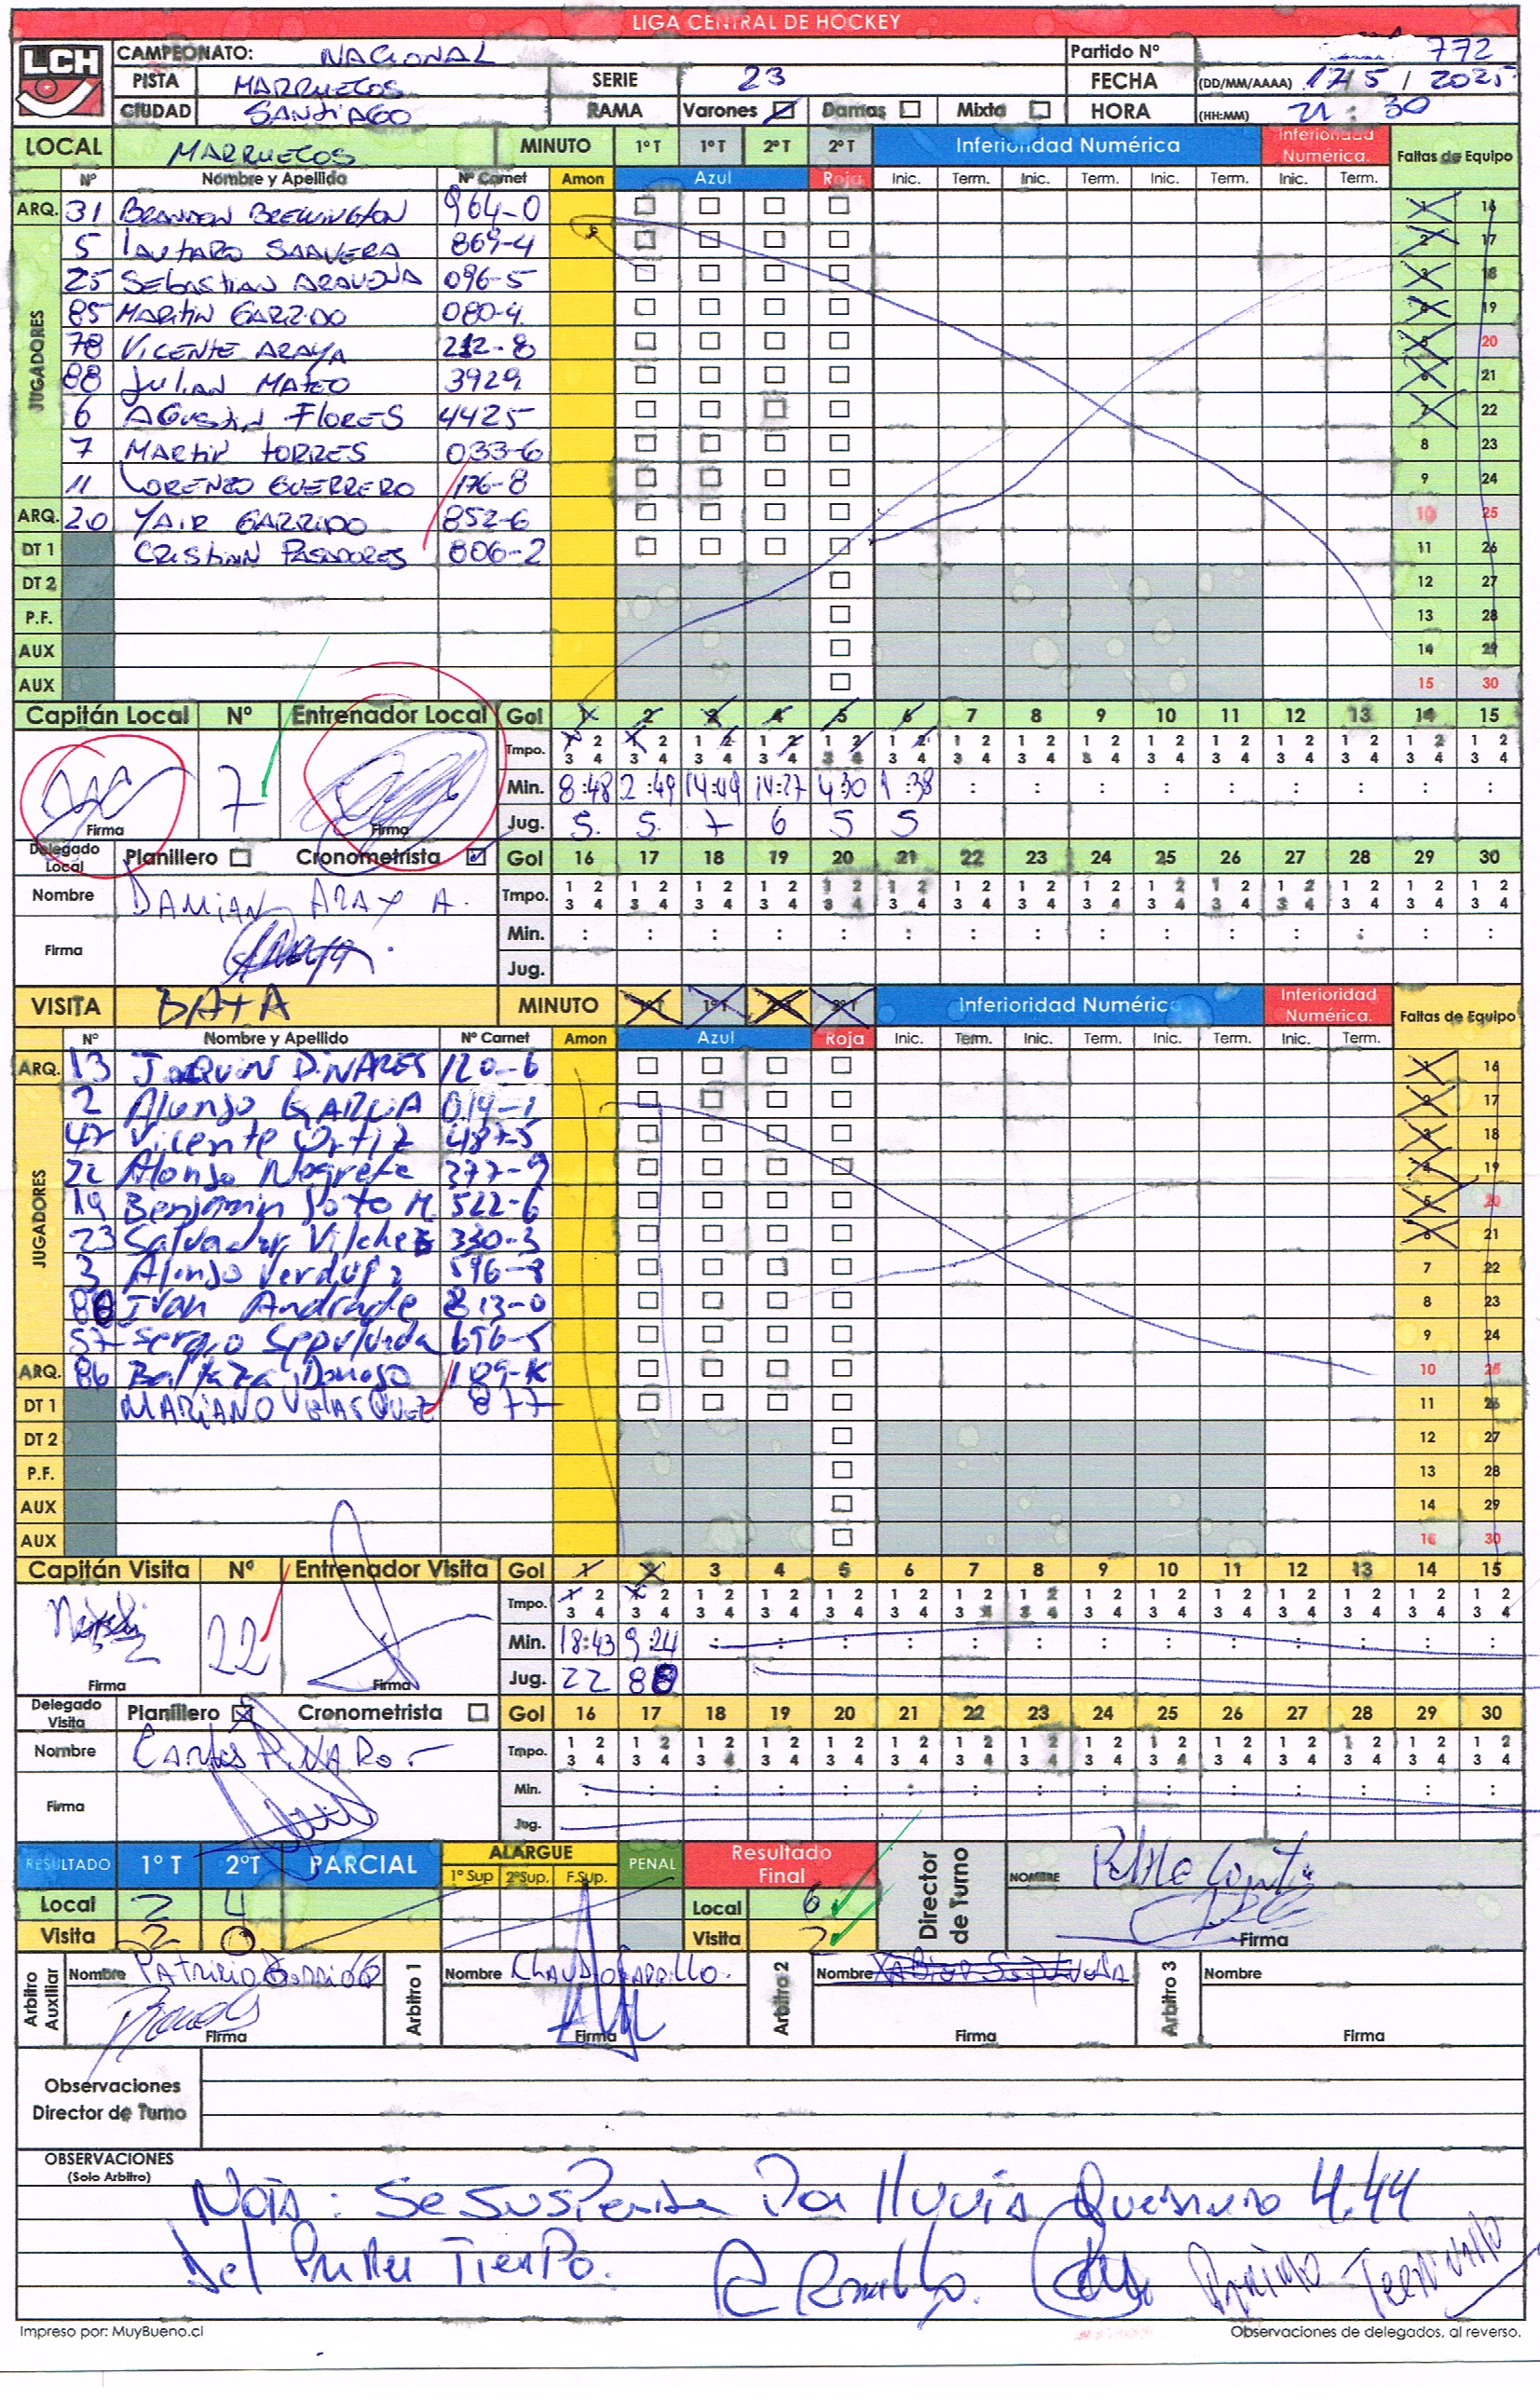 LIGA CENTRAL DE HOCKEY
LCH
CAMPEONATO: NACIONAL Partido Nº 772
PISTA MARRUECOS SERIE 23 FECHA (DD/MM/AAAA) 17/5/2025
CIUDAD SANTIAGO RAMA Varones Damas Mixta HORA (HH:MM) 21:30
LOCAL MARRUECOS MINUTO 1º T 1º T 2º T 2º T Inferioridad Numérica Inferioridad Numérica. Faltas de Equipo
Nº Nombre y Apellido Nº Carnet Amon Azul Roja Inic. Term. Inic. Term. Inic. Term. Inic. Term.
ARQ. 31 BRANDON BREWINGTON 964-0 1 16
JUGADORES
5 LAUTARO SAAVERA 869-4 2 17
25 SEBASTIAN ARAVENA 096-5 3 18
85 MARTIN GARRIDO 080-4 4 19
78 VICENTE ARAYA 212-8 5 20
88 JULIAN MATEO 3929 6 21
6 AGUSTIN FLORES 4425 7 22
7 MARTIN TORRES 033-6 8 23
11 LORENZO GUERRERO 176-8 9 24
ARQ. 20 YAIR GARRIDO 852-6 10 25
DT 1 CRISTIAN 806-2 11 26
DT 2 12 27
P.F. 13 28
AUX 14 29
AUX 15 30
Capitán Local Nº Entrenador Local Gol 1 2 3 4 5 6 7 8 9 10 11 12 13 14 15
Tmpo. 1 2 1 2 1 2 1 2 1 2 1 2 1 2 1 2 1 2 1 2 1 2 1 2 1 2 1 2 1 2
3 4 3 4 3 4 3 4 3 4 3 4 3 4 3 4 3 4 3 4 3 4 3 4 3 4 3 4 3 4
7 Min. 8:48 2:49 14:49 14:27 4:30 1:38 : : : : : : : : :
Firma Firma Jug. 5 5 7 6 5 5
Delegado Local Planillero Cronometrista Gol 16 17 18 19 20 21 22 23 24 25 26 27 28 29 30
Nombre DAMIAN ARAYA A. Tmpo. 1 2 1 2 1 2 1 2 1 2 1 2 1 2 1 2 1 2 1 2 1 2 1 2 1 2 1 2 1 2
3 4 3 4 3 4 3 4 3 4 3 4 3 4 3 4 3 4 3 4 3 4 3 4 3 4 3 4 3 4
Firma Min. : : : : : : : : : : : : : : :
Jug.
VISITA BATA MINUTO 1º T 1º T 2º T 2º T Inferioridad Numérica Inferioridad Numérica. Faltas de Equipo
Nº Nombre y Apellido Nº Carnet Amon Azul Roja Inic. Term. Inic. Term. Inic. Term. Inic. Term.
ARQ. 13 JOAQUIN DINARES 120-6 1 16
JUGADORES
2 Alonso GARCIA 014-1 2 17
47 Vicente Ortiz 487-5 3 18
22 Alonso Negrete 377-9 4 19
19 Benjamin Soto M. 522-6 5 20
23 Salvador Vilches 330-3 6 21
3 Alonso Verdugo 596-8 7 22
88 Ivan Andrade 813-0 8 23
57 Sergio Sepulveda 696-5 9 24
ARQ. 86 Baltaza Donoso 189-K 10 25
DT 1 MARIANO VELASQUEZ 877 11 26
DT 2 12 27
P.F. 13 28
AUX 14 29
AUX 15 30
Capitán Visita Nº Entrenador Visita Gol 1 2 3 4 5 6 7 8 9 10 11 12 13 14 15
Tmpo. 1 2 1 2 1 2 1 2 1 2 1 2 1 2 1 2 1 2 1 2 1 2 1 2 1 2 1 2 1 2
3 4 3 4 3 4 3 4 3 4 3 4 3 4 3 4 3 4 3 4 3 4 3 4 3 4 3 4 3 4
22 Min. 18:43 9:24 : : : : : : : : : : : : :
Firma Firma Jug. 22 88
Delegado Visita Planillero Cronometrista Gol 16 17 18 19 20 21 22 23 24 25 26 27 28 29 30
Nombre Carlos Tmpo. 1 2 1 2 1 2 1 2 1 2 1 2 1 2 1 2 1 2 1 2 1 2 1 2 1 2 1 2 1 2
3 4 3 4 3 4 3 4 3 4 3 4 3 4 3 4 3 4 3 4 3 4 3 4 3 4 3 4 3 4
Firma Min. : : : : : : : : : : : : : : :
Jug.
RESULTADO 1º T 2ºT PARCIAL ALARGUE 1º Sup 2ºSup. F.Sup. PENAL Resultado Final Director de Turno NOMBRE
Local 2 4 Local 6
Visita 2 0 Visita 2 Firma
Arbitro Auxiliar Nombre PATRICIO Arbitro 1 Nombre CLAUDIO CARRILLO. Arbitro 2 Nombre Arbitro 3 Nombre
Firma Firma Firma Firma
Observaciones
Director de Turno
OBSERVACIONES
(Solo Arbitro)
Nota: Se suspende por lluvia 4:44
del Primer Tiempo.
Impreso por: MuyBueno.cl Observaciones de delegados, al reverso.